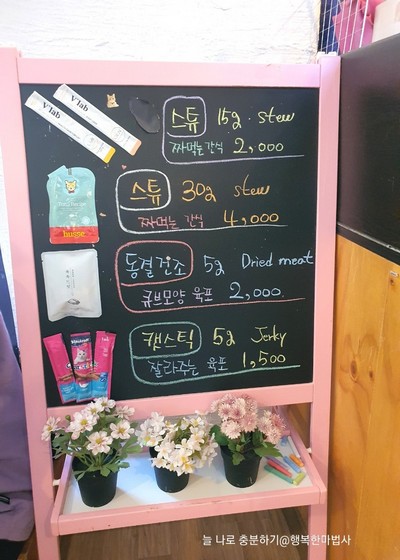 V'lab
V'lab
스튜 15g. stew
짜먹는간식 2,000
스튜 30g stew
짜먹는 간식 4,000
husse
동결건조 5g Dried meat
큐브모양 육포 2,000
캣스틱 5g Jerky
잘라주는 육포 1,500
늘 나로 충분하기@행복한마법사